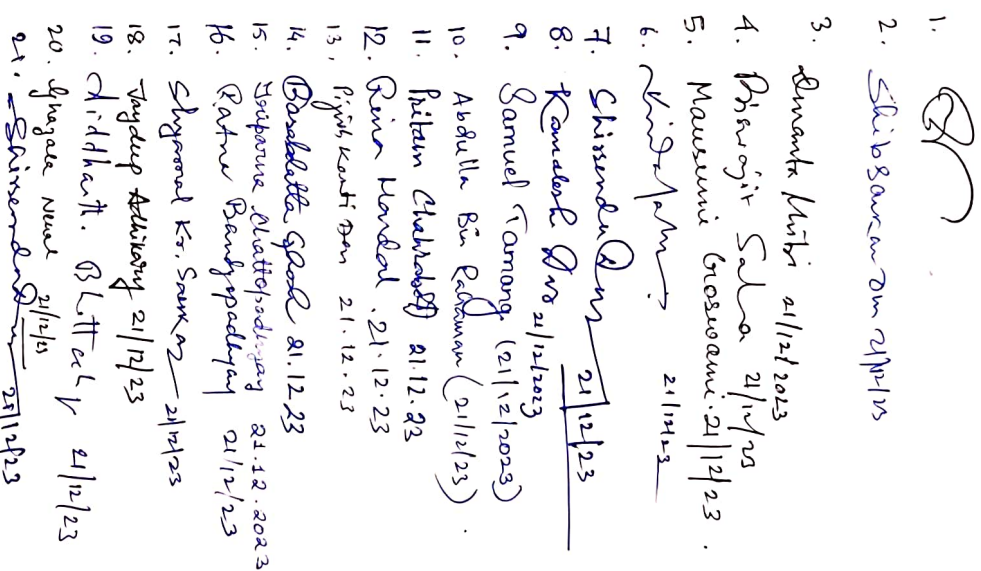 1.
2. Shibsankar 21/12/23
3. Ananta 21/12/2023
4. Biswajit Saha 21/12/23
5. Mausumi Goswami. 21/12/23.
6. 21/12/23
7. Shirsendu Das 21/12/23
8. Kamalesh Das 21/12/2023
9. Samuel Tamang (21/12/2023)
10. Abdulla Bin Rahaman (21/12/23).
11. Pritam Chakraborty 21.12.23
12. Rina Mondal. 21.12.23
13. Piyush Kanti Dan 21.12.23
14. Basabdatta Ghosh 21.12.23
15. Chattopadhyay 21.12.2023
16. Ratna Bandyopadhyay 21/12/23
17. Shyamal Kr. Sarkar 21/12/23
18. Jaydeep Adhikary 21/12/23
19. Siddharth. 21/12/23
20. 21/12/23
21. 21/12/23